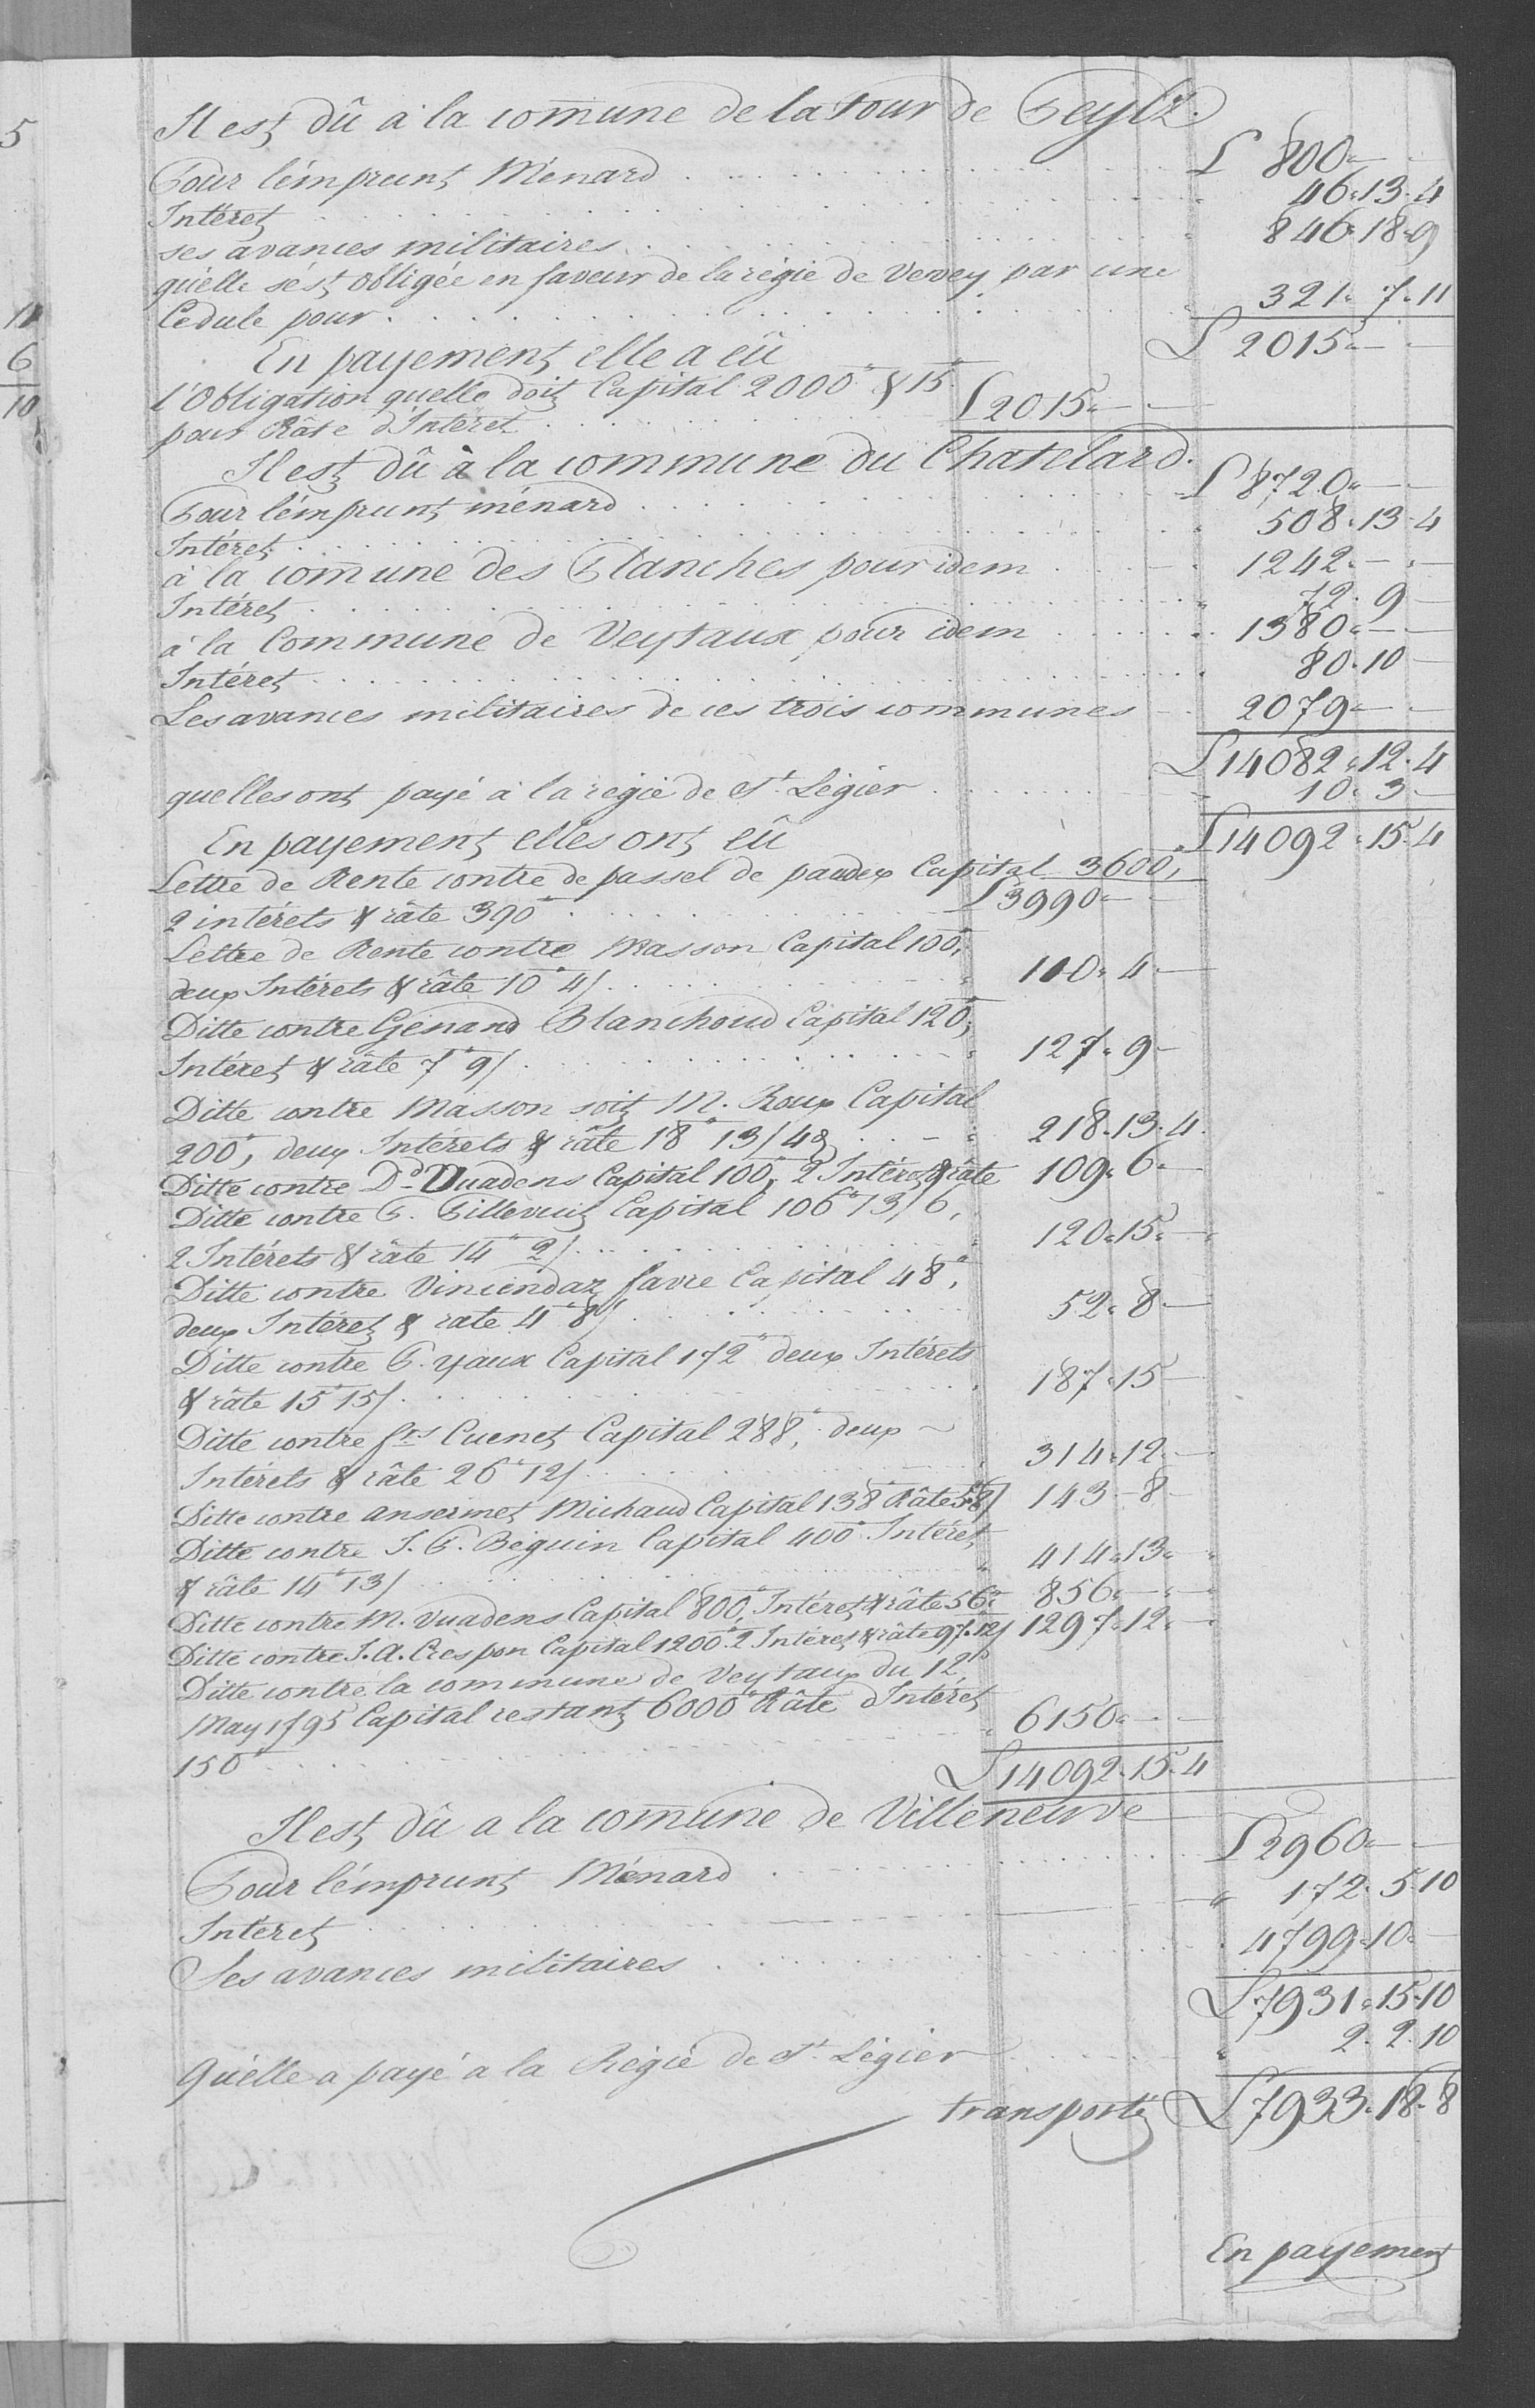 5
11
6
10
Il est dû à la comune de la tour de Peylz.
Pour l'émprunt Ménard . . . L 800"—
Intéret . . . 46"13"4
ses avances militaires . . . 846"18"9
qu'elle s'est obligée en faveur de la régie de Vevey par une
Cedule pour . . . 321" 7"11
L 2015"—
En payement elle a eû
l'Obligation quelle doit Capital 2000" & 15"
pour Râte d'Intéret . . . L 2015"—
Il est dû à la commune du Chatelard.
Pour l'émprunt ménard . . . L 8720"—
Intéret . . . 508"13"4
à la comune des Planches pour idem . . . 1242"—
Intéret . . . 72" 9—
à la Commune de Veytaux pour idem . . . 1380"—
Intéret . . . 80"10—
Les avances militaires de ces trois communes 2079"—
L 14082"12"4
quelles ont payé à la régie de St. Légier . . . 10" 3—
L 14092"15"4
En payement elles ont eû
Lettre de Rente contre de passel de paudex Capital 3600",
2 intérets & râte 390" . . . L 3990"—
Lettre de Rente contre Masson Capital 100",
deux Intérets & râte 10" 4/ . . . 110" 4—
Ditte contre Genand Blanchoud Capital 120",
Intéret & râte 7" 9/ . . . 127" 9—
Ditte contre Masson soit M. Roux Capital
200", deux Intérets & râte 18" 13/4 . . . 218"13"4
Ditte contre Dd. Vuadens Capital 100", 2 Intéret & râte 109" 6—
Ditte contre P. Pilleveuit Capital 106" 13/6,
2 Intérets & râte 14" 2/ . . . 120"15"—
Ditte contre Vincendaz favre Capital 48",
deux Intéret & rate 4" 8/ . . . 52" 8—
Ditte contre P. yaux Capital 172" deux Intérets
& râte 15" 15/ . . . 187"15—
Ditte contre frs Cuenet Capital 288", deux ~
Intérets & râte 26" 12/ . . . 314"12—
Ditte contre ansermet Michaud Capital 138" Râte 5"8/ 143—8—
Ditte contre J. P. Béguin Capital 400" Intéret
& râte 14" 13/ . . . 414"13"—
Ditte contre M. Vuadens Capital 800", Intéret & râte 56" 856"—
Ditte contre J. A. Crespon Capital 1200" 2 Intéret & râte 97"12/ 1297"12"—
Ditte contre la commune de Veytaux du 12e
May 1795 Capital restant 6000" Râte d'Intéret
150" . . . 6150"—
L 14092"15"4
Il est dû a la comune de Villeneuve
Pour l'émprunt Ménard . . . L 2960"—
Intéret . . . 172" 5"10
Ses avances militaires . . . 4799"10"—
L 7931"15"10
Qu'elle a payé a la Régie de St. Légier . . . 2" 2"10
transporté L 7933"18"8
En payement